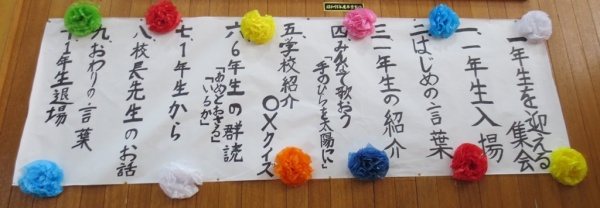 一年生を迎える
集会
一、一年生入場
二、はじめの言葉
三、一年生の紹介
四、みんなで歌おう
「手のひらを太陽に」
五、学校紹介
〇×クイズ
六、6年生の群読
「あめとおさる」
「いるか」
七、1年生から
八、校長先生のお話
九、おわりの言葉
十、1年生退場